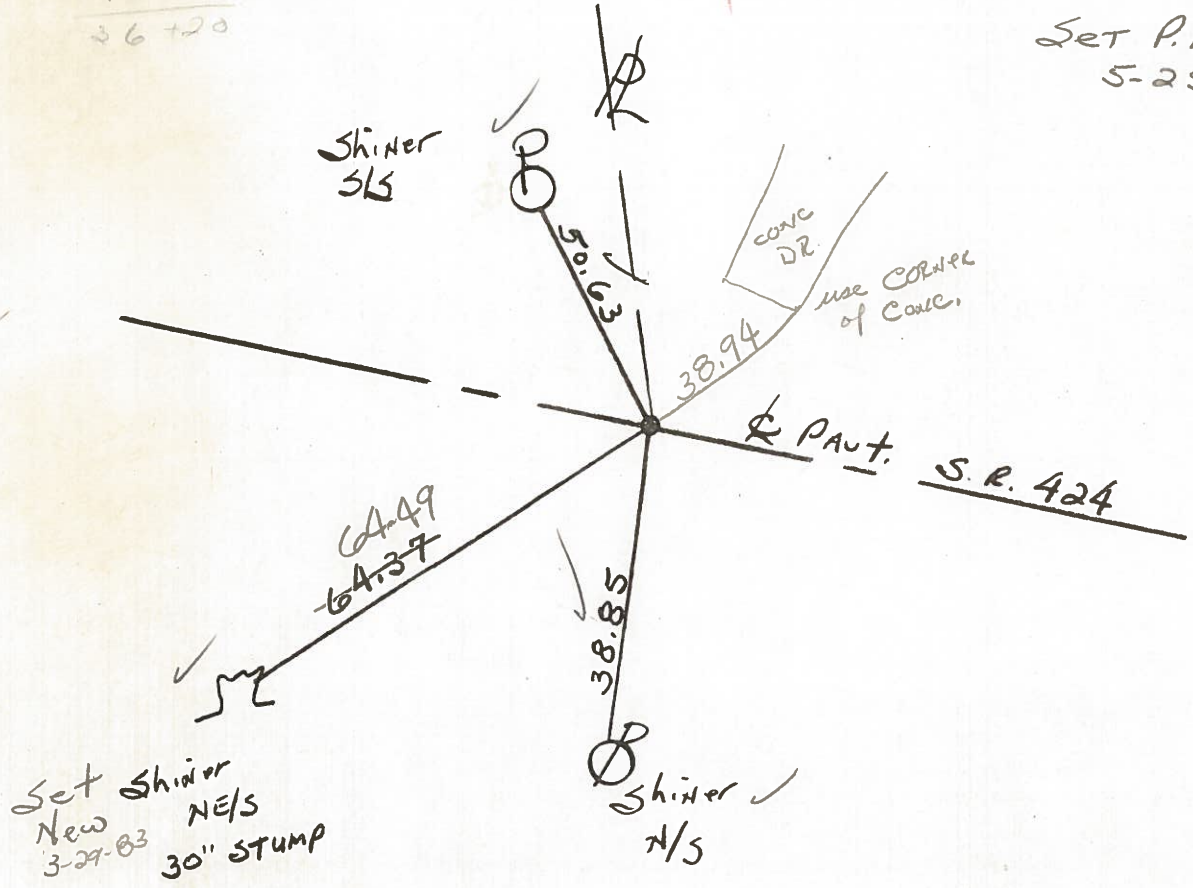 36+20
Set P.
5-2
Shiner
S/S
50.63
CONC
DR.
use CORNER
of CONC.
38.94
℄ PAVt.
S.R. 424
64.49
64.37
38.85
Set Shiner
New NE/S
3-29-83 30" STUMP
Shiner
N/S